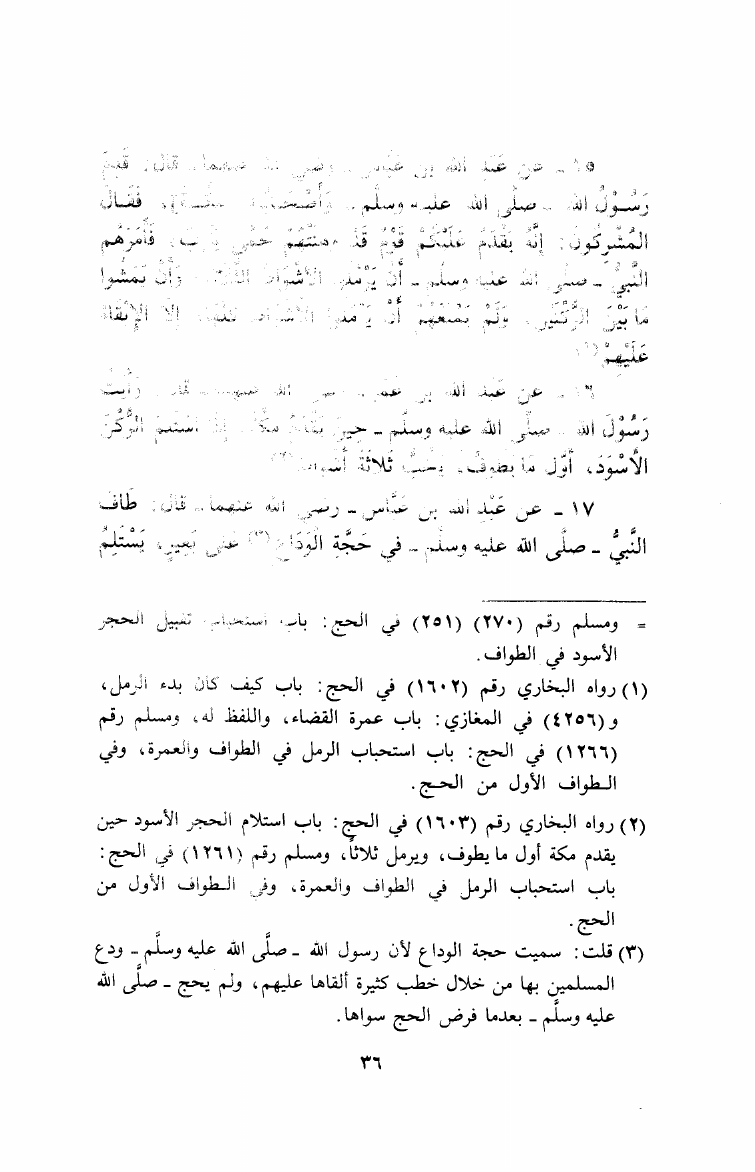 ١٥ - عن عَبْد الله بن عَبَّاس - رضي الله عنهما - قال: قَدِمَ
رَسُوْلُ الله - صلَّى الله عليه وسلَّم - وَأَصْحَابُهُ فَقَالَ
المُشْرِكُونَ: إِنَّهُ يَقْدَمُ عَلَيْكُمْ قَوْمٌ قَدْ وَهَنَتْهُمْ حُمَّى يَثْرِبَ، فَأَمَرَهُم
النَّبِيُّ - صلَّى الله عليه وسلَّم - أَنْ يَرْمُلُوا الأَشْوَاطَ الثَّلاثَةَ، وَأَنْ يَمْشُوا
مَا بَيْنَ الرُّكْنَيْنِ، وَلَمْ يَمْنَعْهُمْ أَنْ يَرْمُلُوا الأَشْوَاطَ كُلَّهَا إِلَّا الإِبْقَاءُ
عَلَيْهِمْ(١).
١٦ - عن عَبْد الله بن عُمَر - رضي الله عنهما - قال: رَأَيْتُ
رَسُوْلَ الله - صلَّى الله عليه وسلَّم - حِينَ يَقْدَمُ مَكَّةَ إِذَا اسْتَلَمَ الرُّكْنَ
الأَسْوَدَ، أَوَّلَ مَا يَطُوفُ، يَخُبُّ ثَلاثَةَ أَشْوَاطٍ(٢).
١٧ - عن عَبْدِ الله بن عَبَّاس - رضي الله عنهما - قال: طَافَ
النَّبِيُّ - صلَّى الله عليه وسلَّم - في حَجَّةِ الْوَدَاعِ(٣) عَلى بَعِيرٍ، يَسْتَلِمُ
= ومسلم رقم (٢٧٠) (٢٥١) في الحج: باب استحباب تقبيل الحجر
الأسود في الطواف.
(١) رواه البخاري رقم (١٦٠٢) في الحج: باب كيف كان بدء الرمل،
و(٤٢٥٦) في المغازي: باب عمرة القضاء، واللفظ له، ومسلم رقم
(١٢٦٦) في الحج: باب استحباب الرمل في الطواف والعمرة، وفي
الطواف الأول من الحج.
(٢) رواه البخاري رقم (١٦٠٣) في الحج: باب استلام الحجر الأسود حين
يقدم مكة أول ما يطوف، ويرمل ثلاثاً، ومسلم رقم (١٢٦١) في الحج:
باب استحباب الرمل في الطواف والعمرة، وفي الطواف الأول من
الحج.
(٣) قلت: سميت حجة الوداع لأن رسول الله - صلَّى الله عليه وسلَّم - ودع
المسلمين بها من خلال خطب كثيرة ألقاها عليهم، ولم يحج - صلَّى الله
عليه وسلَّم - بعدما فرض الحج سواها.
٣٦